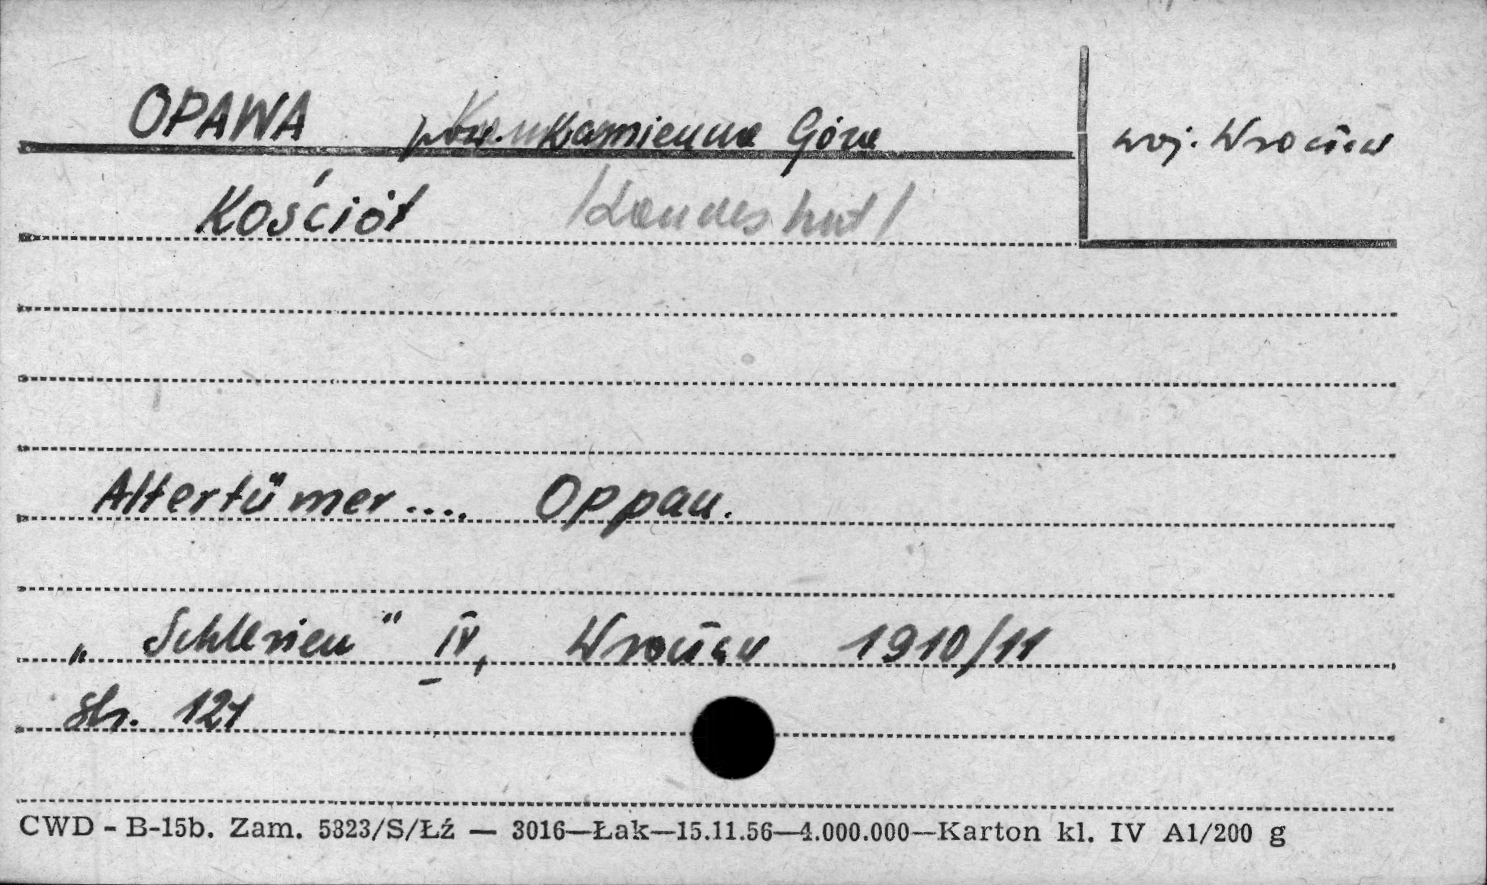 OPAWA pow. Kamienna Góra
woj. Wrocław
Kościół /Landeshut/
Altertümer.... Oppau.
„Schlesien" IV, Wrocław 1910/11
str. 121
CWD - B-15b. Zam. 5823/S/Łź — 3016—Łak—15.11.56—4.000.000—Karton kl. IV A1/200 g